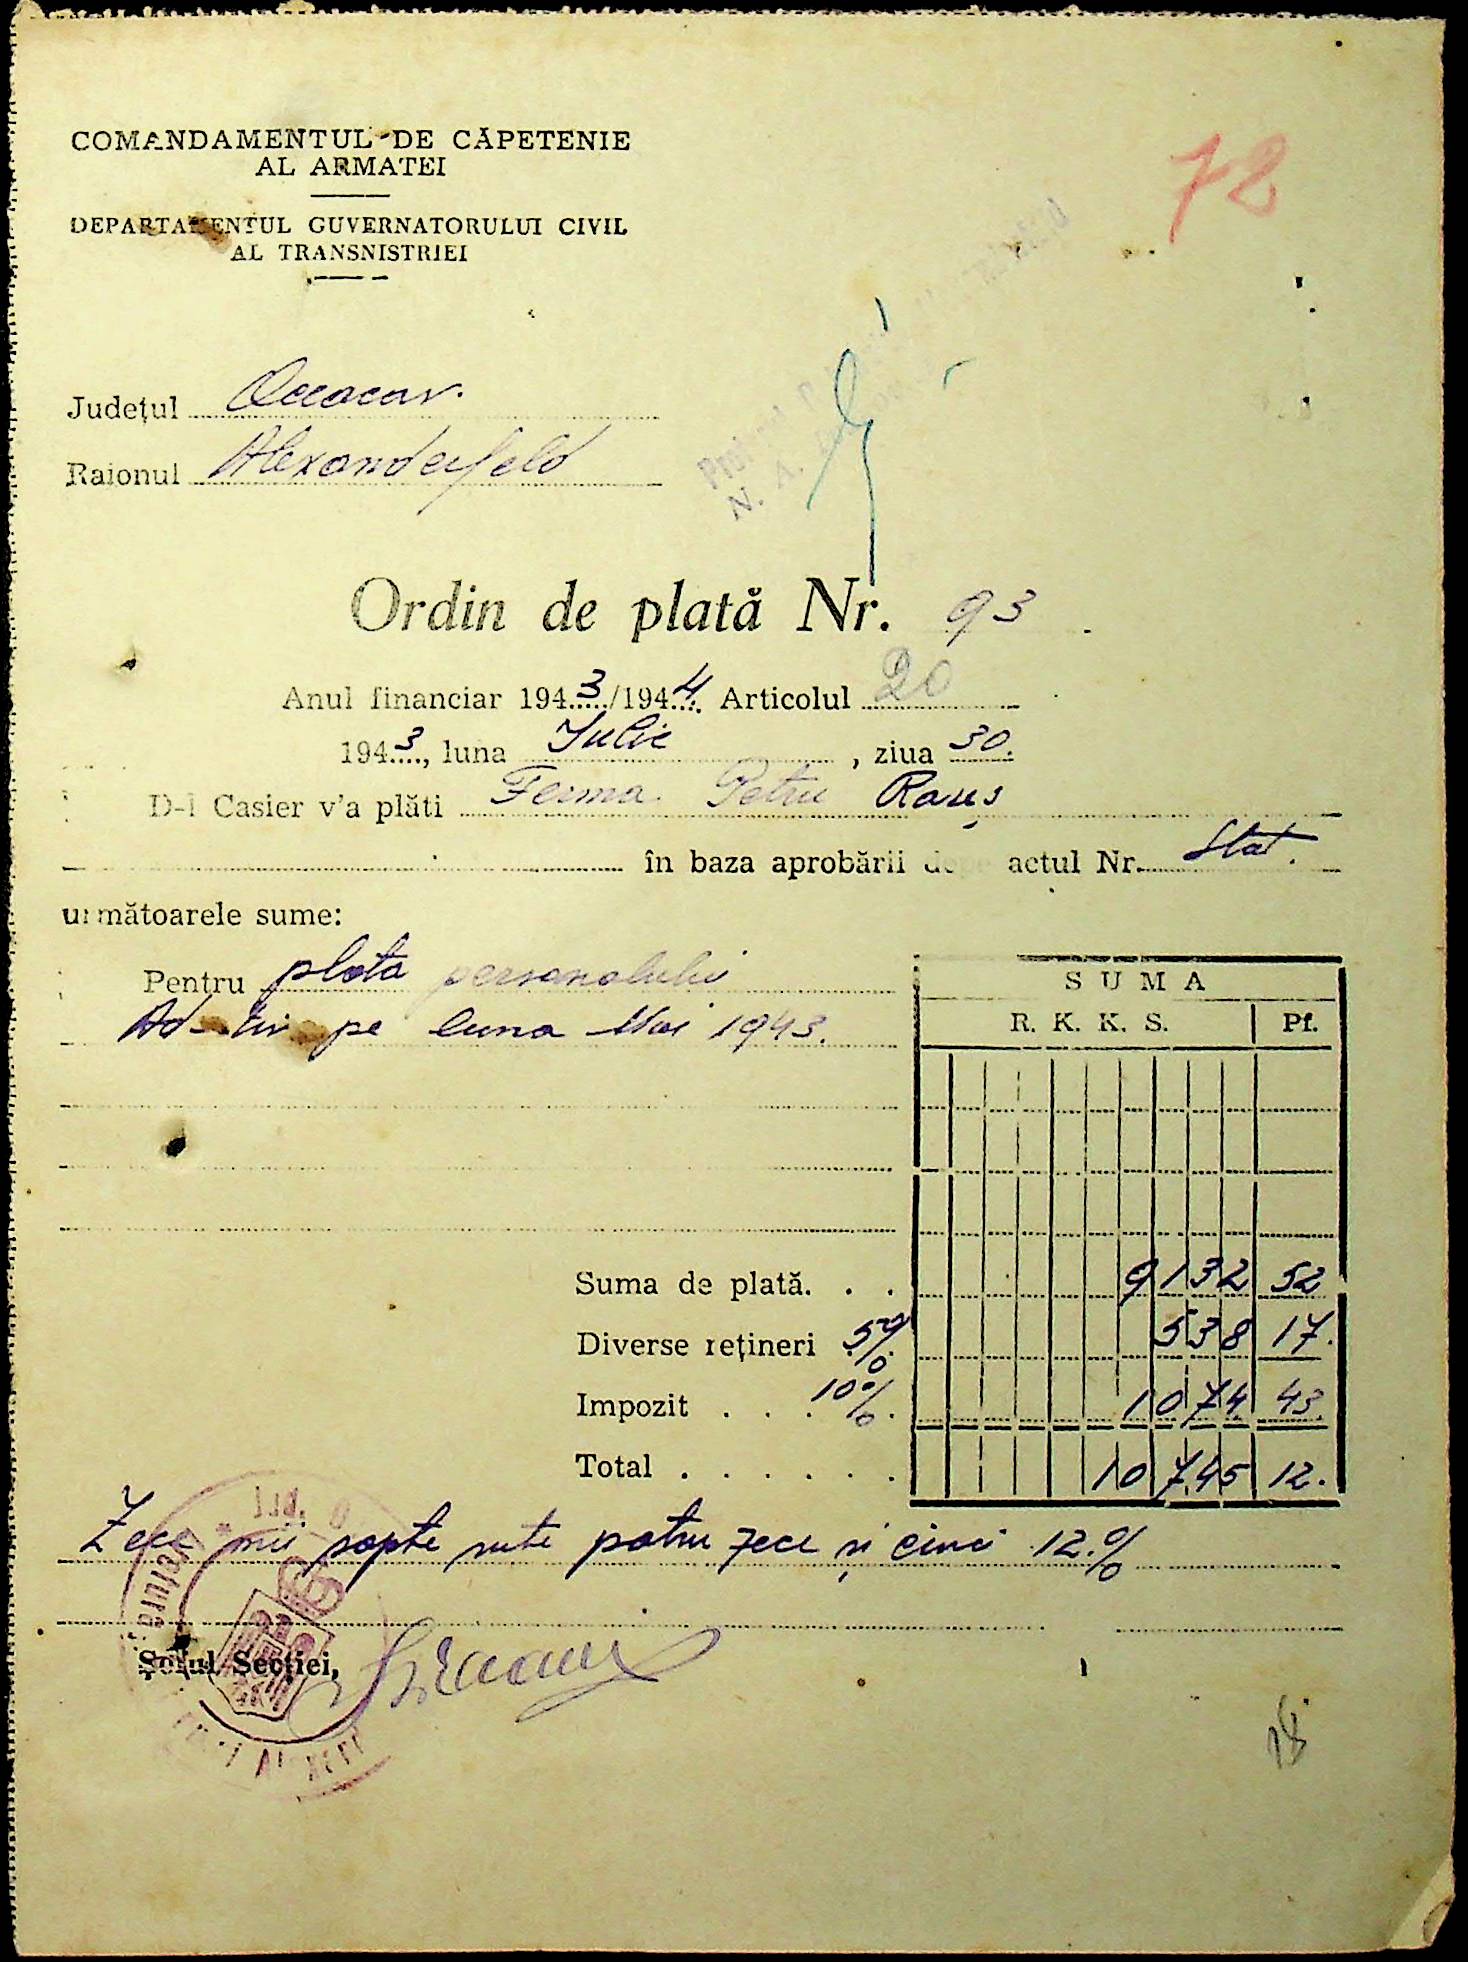 COMANDAMENTUL DE CĂPETENIE
AL ARMATEI
DEPARTAMENTUL GUVERNATORULUI CIVIL
AL TRANSNISTRIEI
72
Județul Oceacov.
Raionul Alexanderfeld
N. A.
Ordin de plată Nr. 93
Anul financiar 1943/1944. Articolul 20
1943, luna Iulie, ziua 30.
D-l Casier v'a plăti Ferma Petru Rareș
în baza aprobării depe actul Nr. Stat.
următoarele sume:
Pentru plata personalului
Ad-tiv pe luna Mai 1943.
SUMA
R. K. K. S. Pf.
Suma de plată. . . 9132 52
Diverse rețineri 5% 538 17.
Impozit . . . 10% . 1074 43.
Total . . . . . . 10745 12.
Zece mii șapte sute patru zece și cinci 12.%
Șeful Secției,